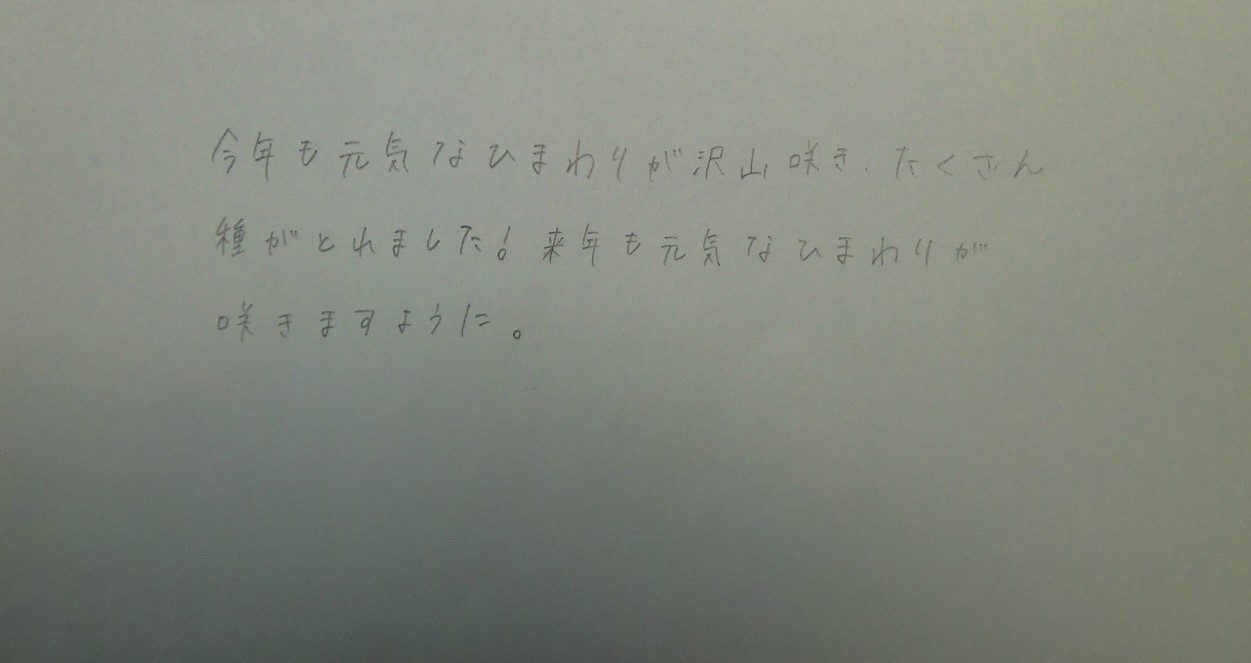 今年も元気なひまわりが沢山咲き、たくさん
種がとれました！来年も元気なひまわりが
咲きますように。